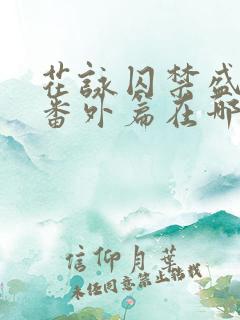 茫詠囚禁盛
番外篇在哪
信仰月葉
未经同意禁止转载